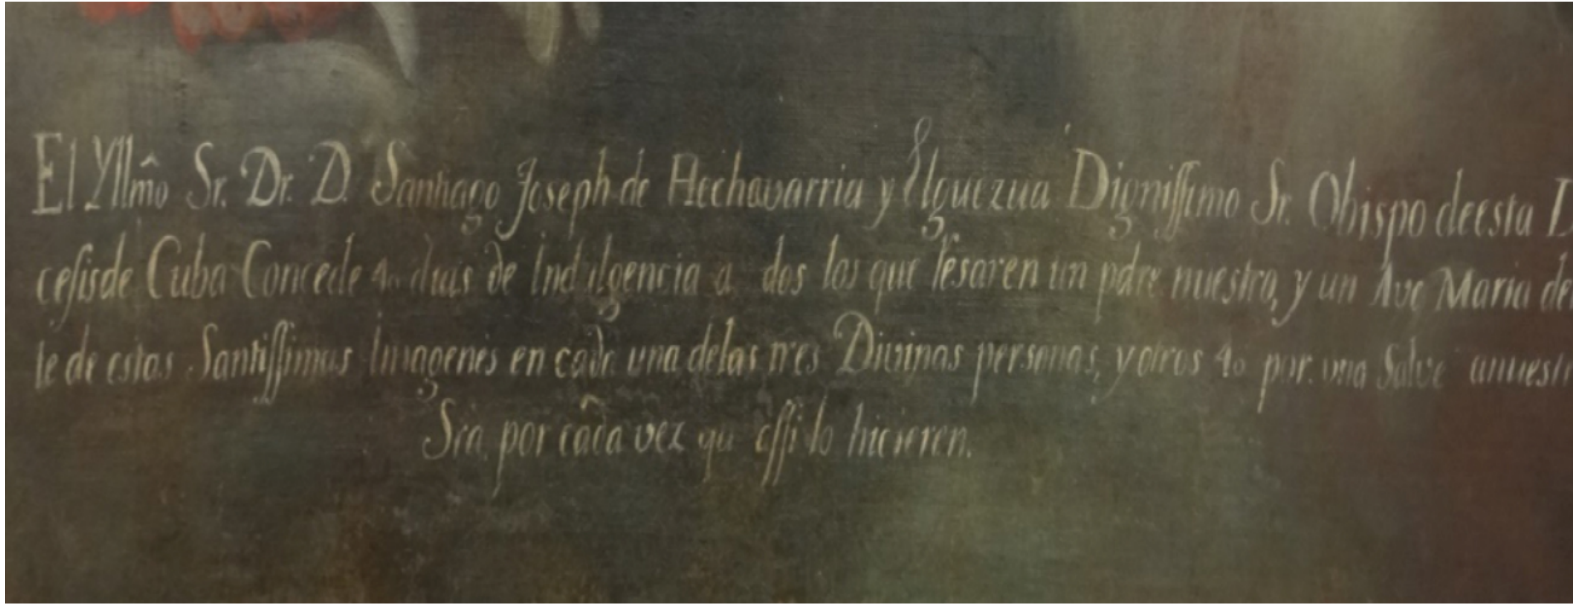 El Yllm̂o Sr. Dr. D. Santiago Joseph de Hechavarria y Elguezua Dignissimo Sr. Obispo de esta D
cesis de Cuba Concede 40 dias de Indulgencia a dos los que resaren un pdre nuestro, y un Ave Maria de
te de estas Santissimas Imagenes en cada una de las tres Divinas personas, y otros 40 por una Salve anuestr
Sra por cada vez qu assi lo hicieren.